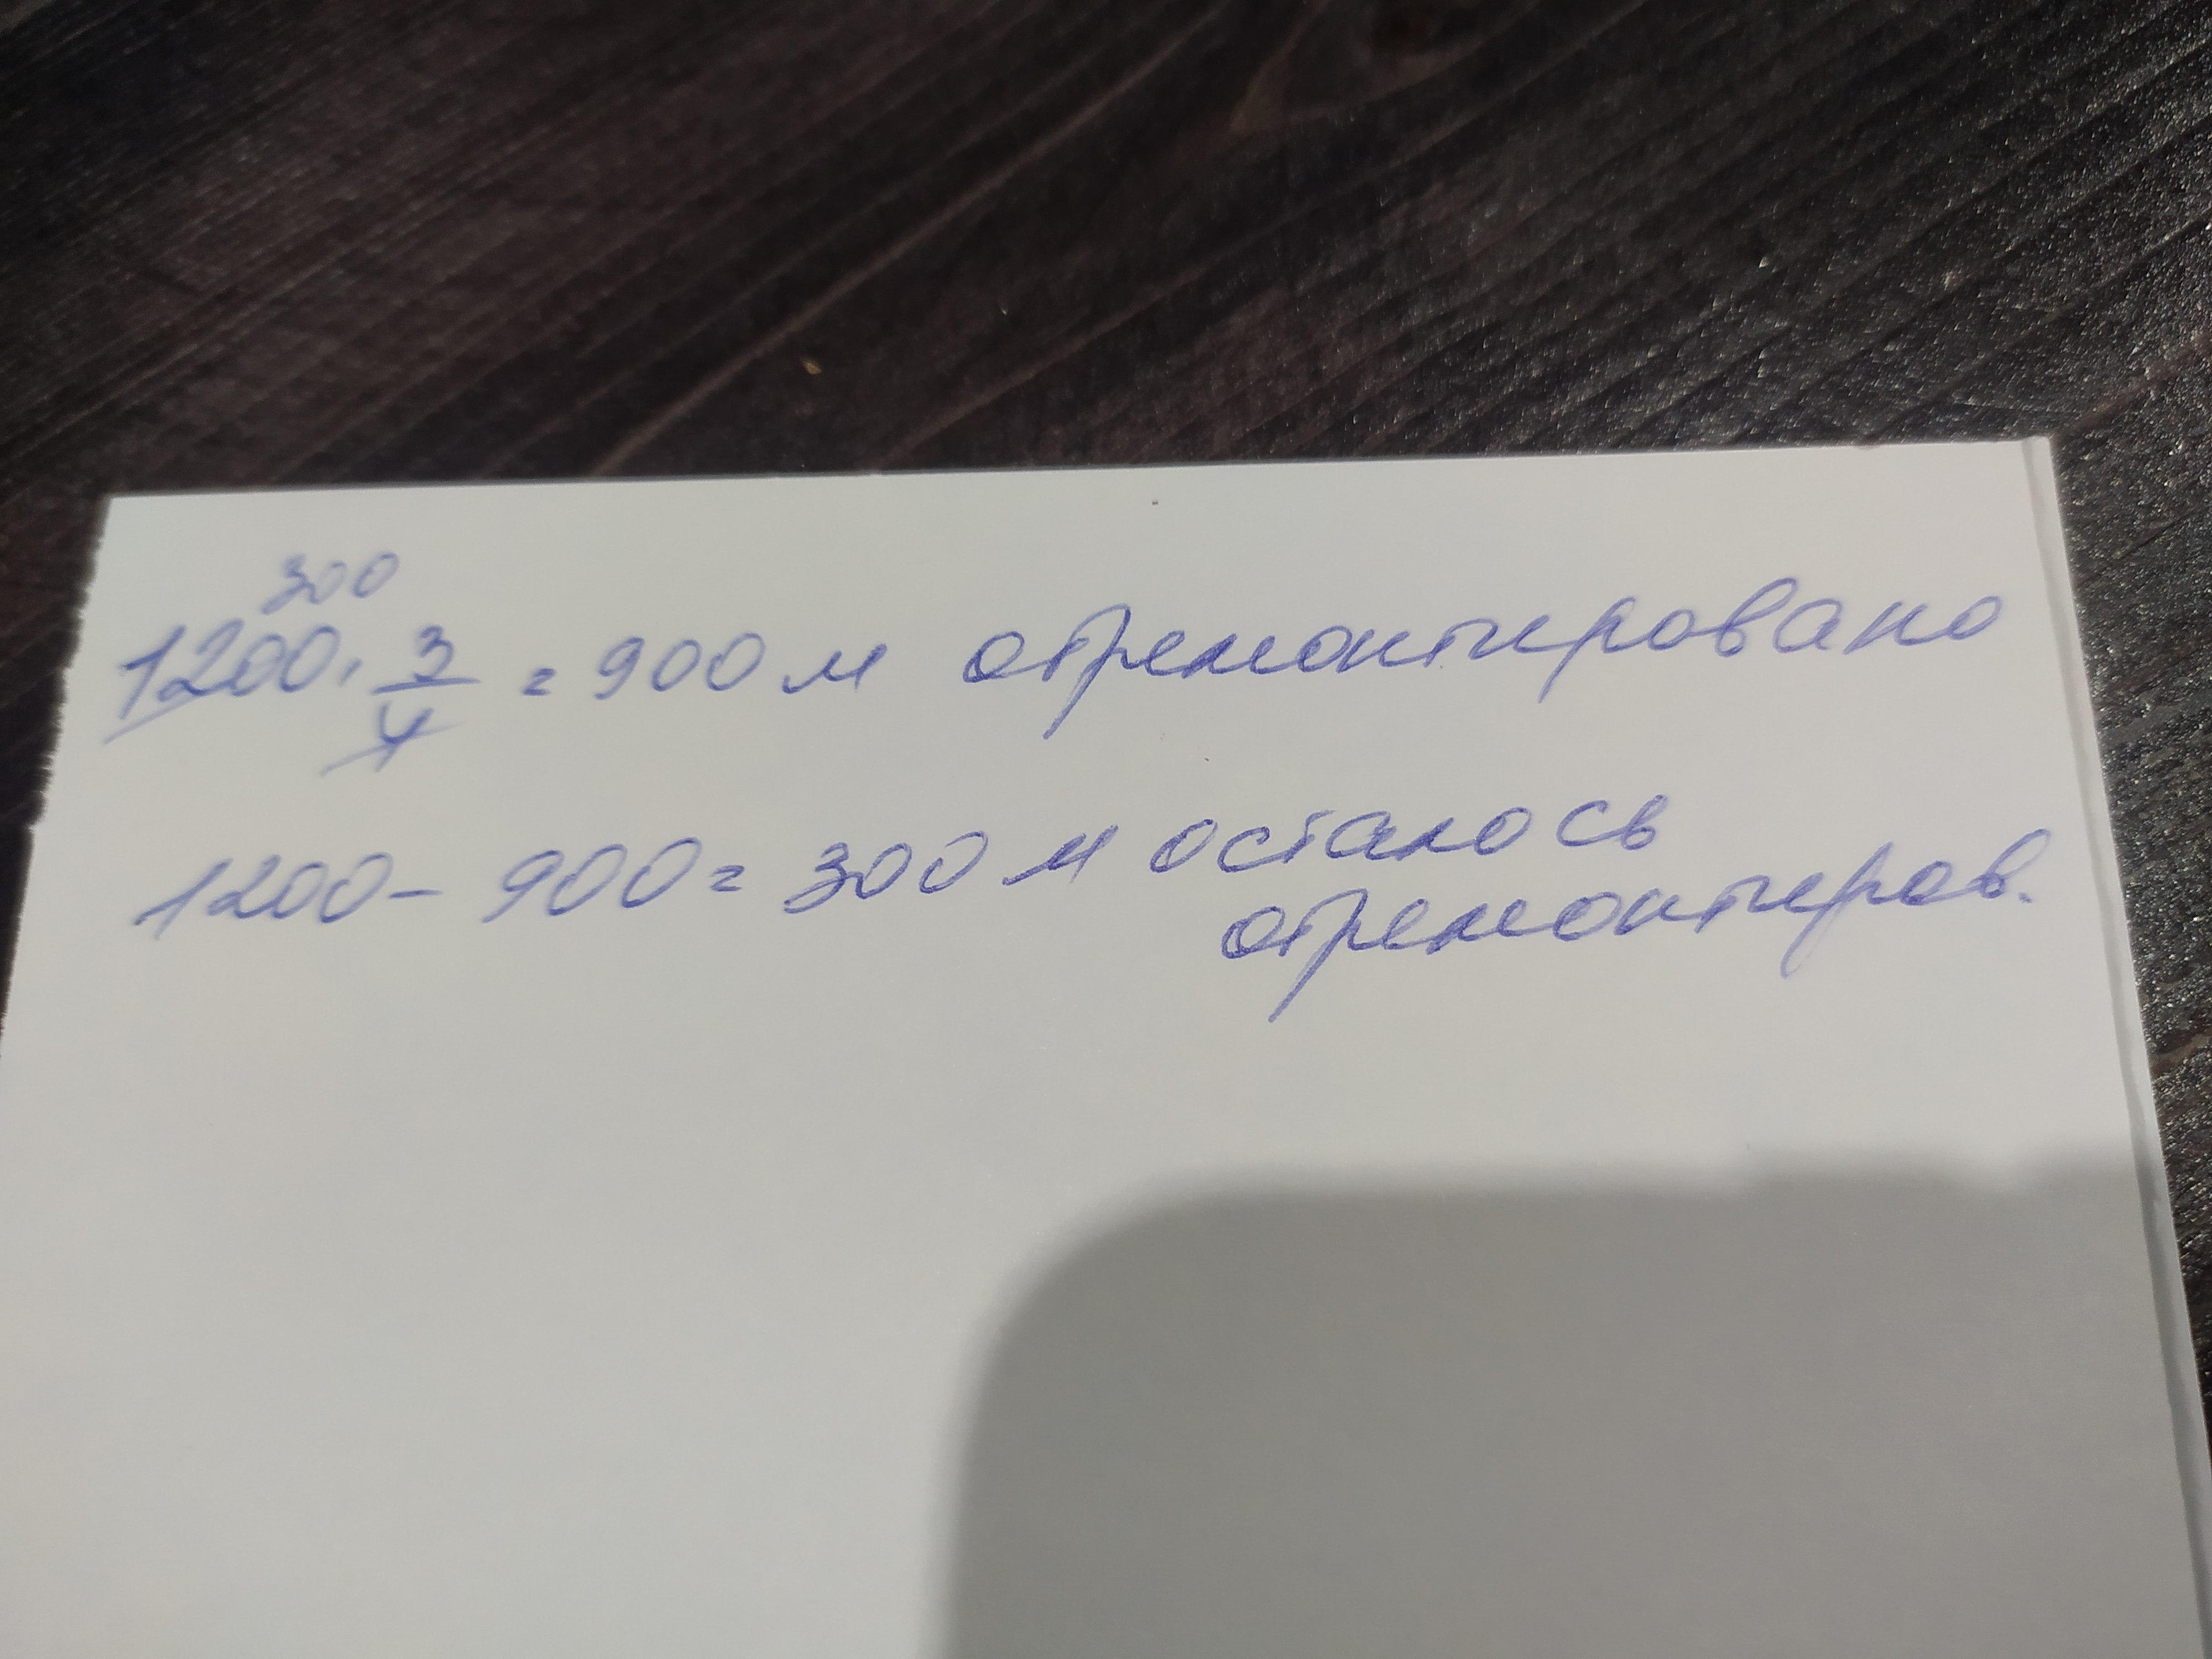 300
1200 · 3/4 = 900 м отремонтировано
1200 - 900 = 300 м осталось
отремонтиров.